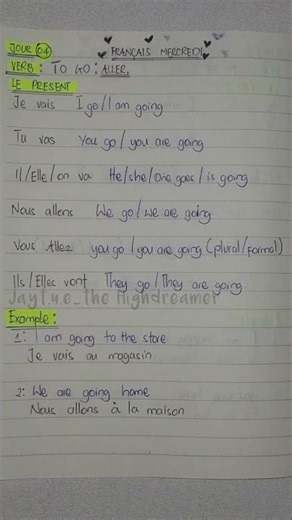 JOUR 04 FRANÇAIS MERCREDI
VERB: TO GO: ALLER.
LE PRESENT
Je vais I go/I am going
Tu vas You go/you are going
Il/Elle/on va He/she/one goes/is going
Nous allons We go/we are going
Vous Allez you go/you are going (plural/formal)
Ils/Elles vont They go/They are going
Jayl.u.e_the highdreamer
Example:
1: I am going to the store
Je vais au magasin
2: We are going home
Nous allons à la maison